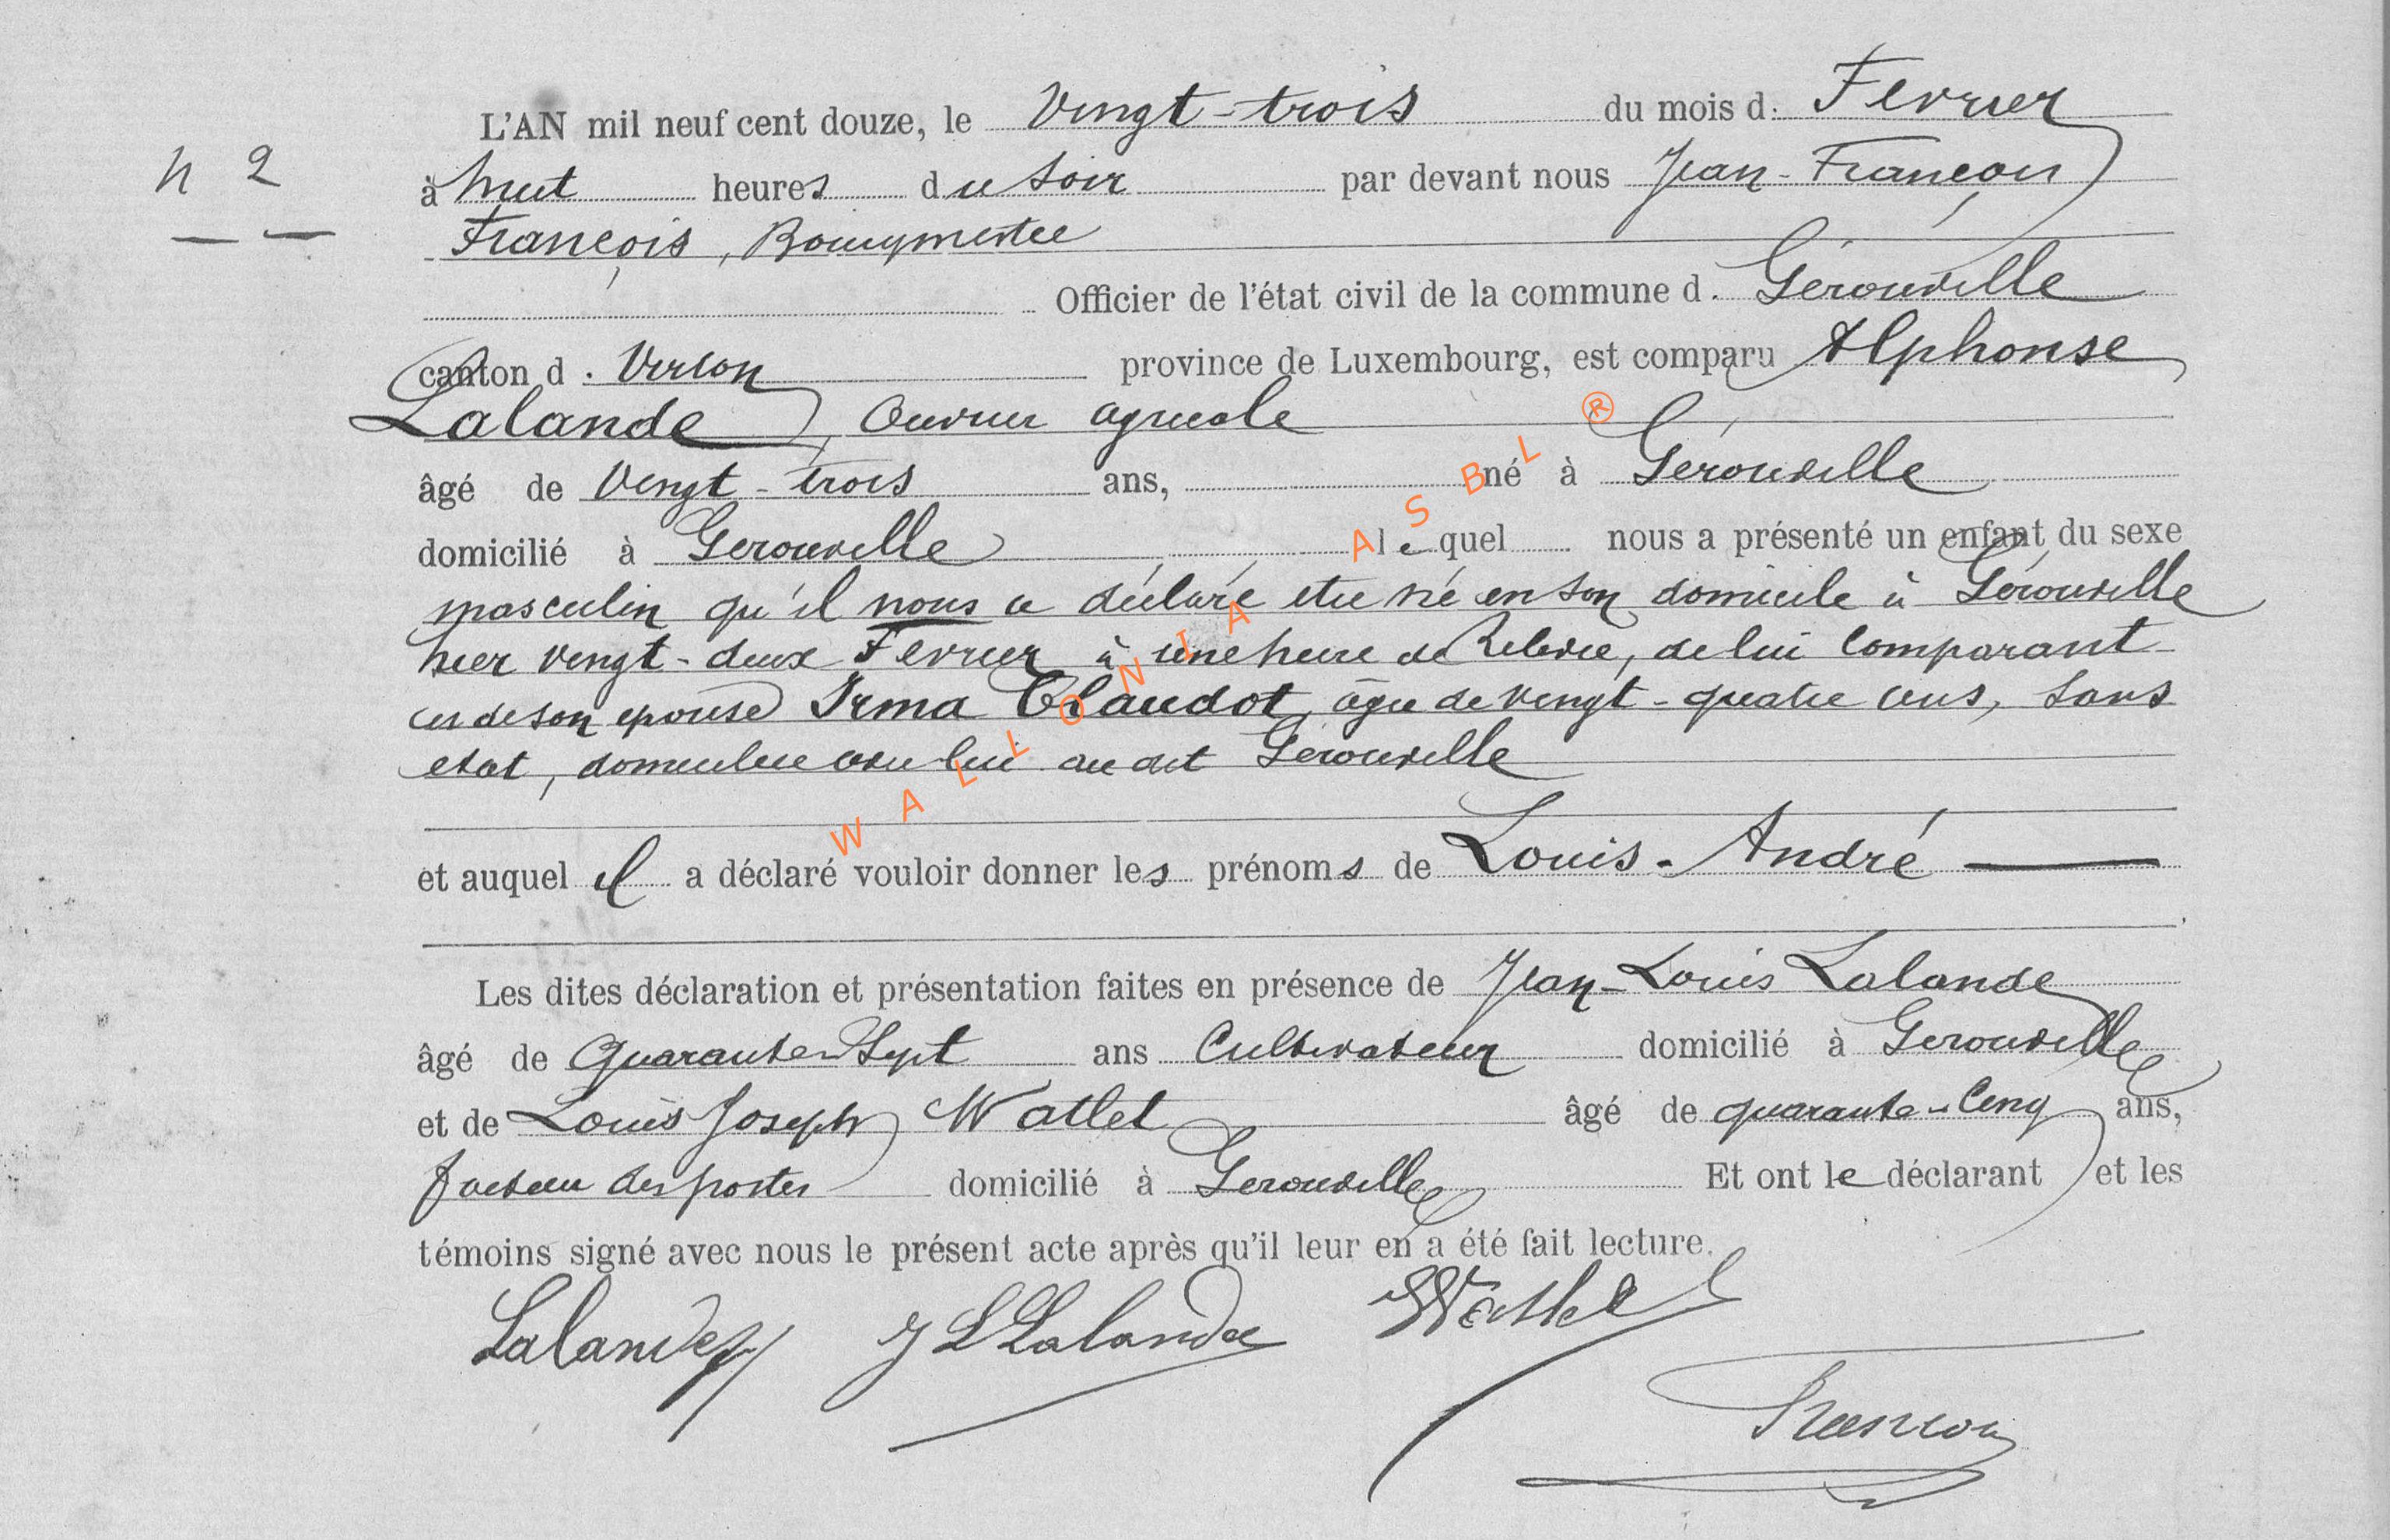 L'AN mil neuf cent douze, le Vingt-trois du mois d. Fevrier
n 2
à huit heures du soir par devant nous Jean-François
François, Bourgmestre
Officier de l'état civil de la commune d. Gérouville
canton d. Virton province de Luxembourg, est comparu Alphonse
Lalande, Ouvrier agricole
âgé de Vingt-trois ans, né à Gérouville
domicilié à Gerouville lequel nous a présenté un enfant du sexe
masculin qu'il nous a déclaré etre né en son domicile à Gérouville
hier vingt-deux Fevrier à une heure de Relevée, de lui Comparant
et de son epouse Irma Claudot, agée de vingt-quatre ans, sans
etat, domiciliée avec lui au dit Gerouville
et auquel il a déclaré vouloir donner les prénoms de Louis-André
Les dites déclaration et présentation faites en présence de Jean-Louis Lalande
âgé de Quarante-Sept ans Cultivateur domicilié à Gerouville
et de Louis Joseph Watlet âgé de quarante-Cinq ans,
facteur des postes domicilié à Gerouville Et ont le déclarant et les
témoins signé avec nous le présent acte après qu'il leur en a été fait lecture.
Lalande J L Lalande Watlet
François
WALLONIA ASBL ®